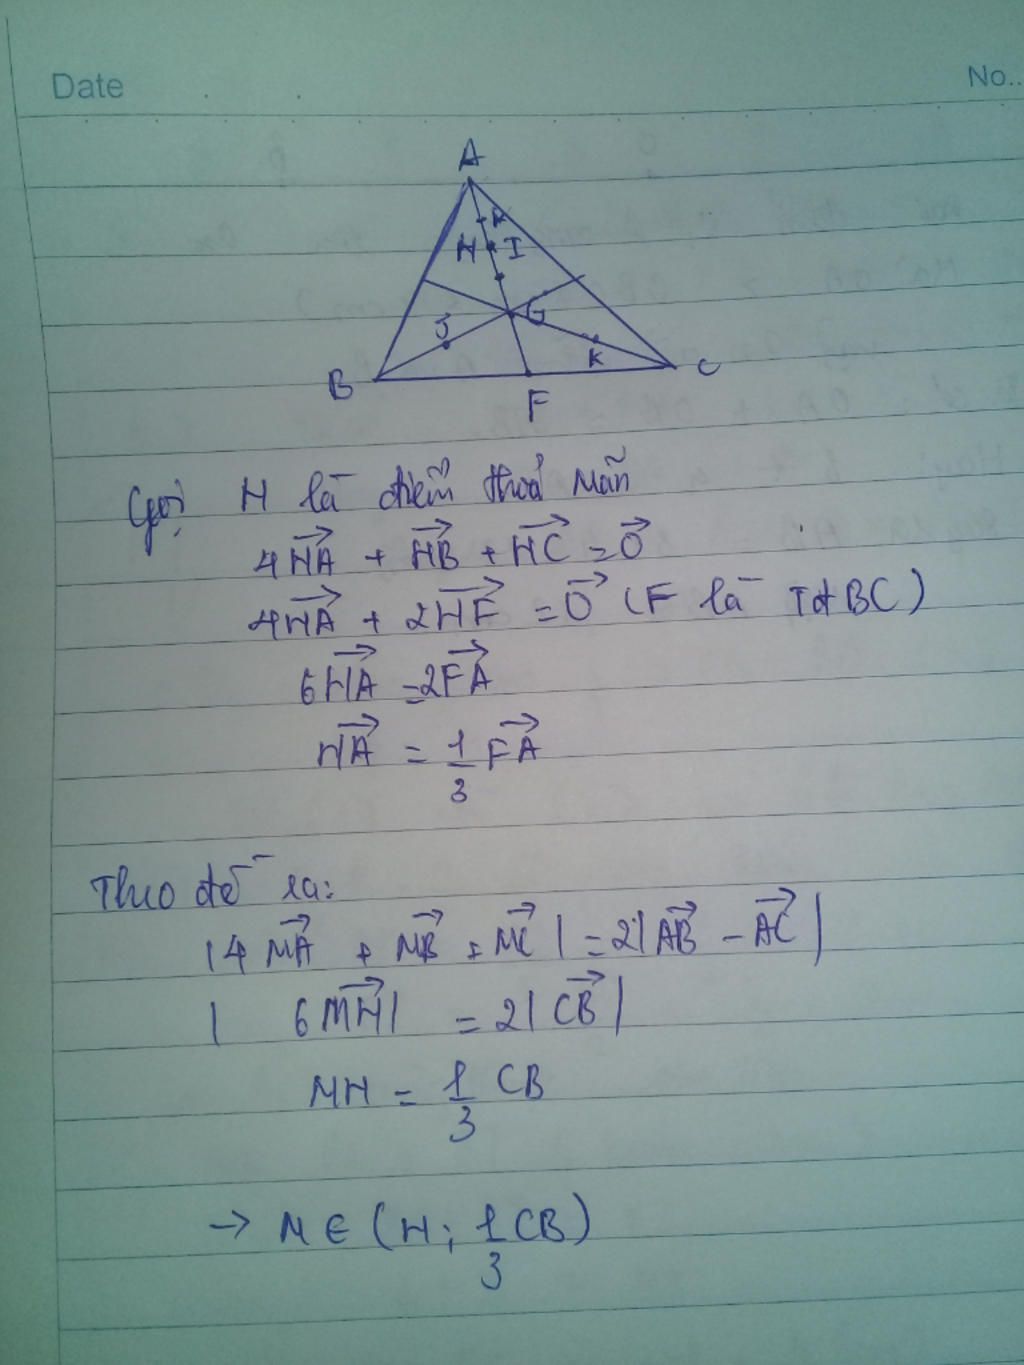 Date
No..
A
H I
J
G
K
B
C
F
Gọi H là điểm thoả mãn
4HA + HB + HC = 0
4HA + 2HF = 0 (F là Tđ BC)
6HA = 2FA
HA = 1/3 FA
Theo đề ra:
|4MA + MB + MC| = 2|AB - AC|
|6MH| = 2|CB|
MH = 1/3 CB
→ M ∈ (H; 1/3 CB)